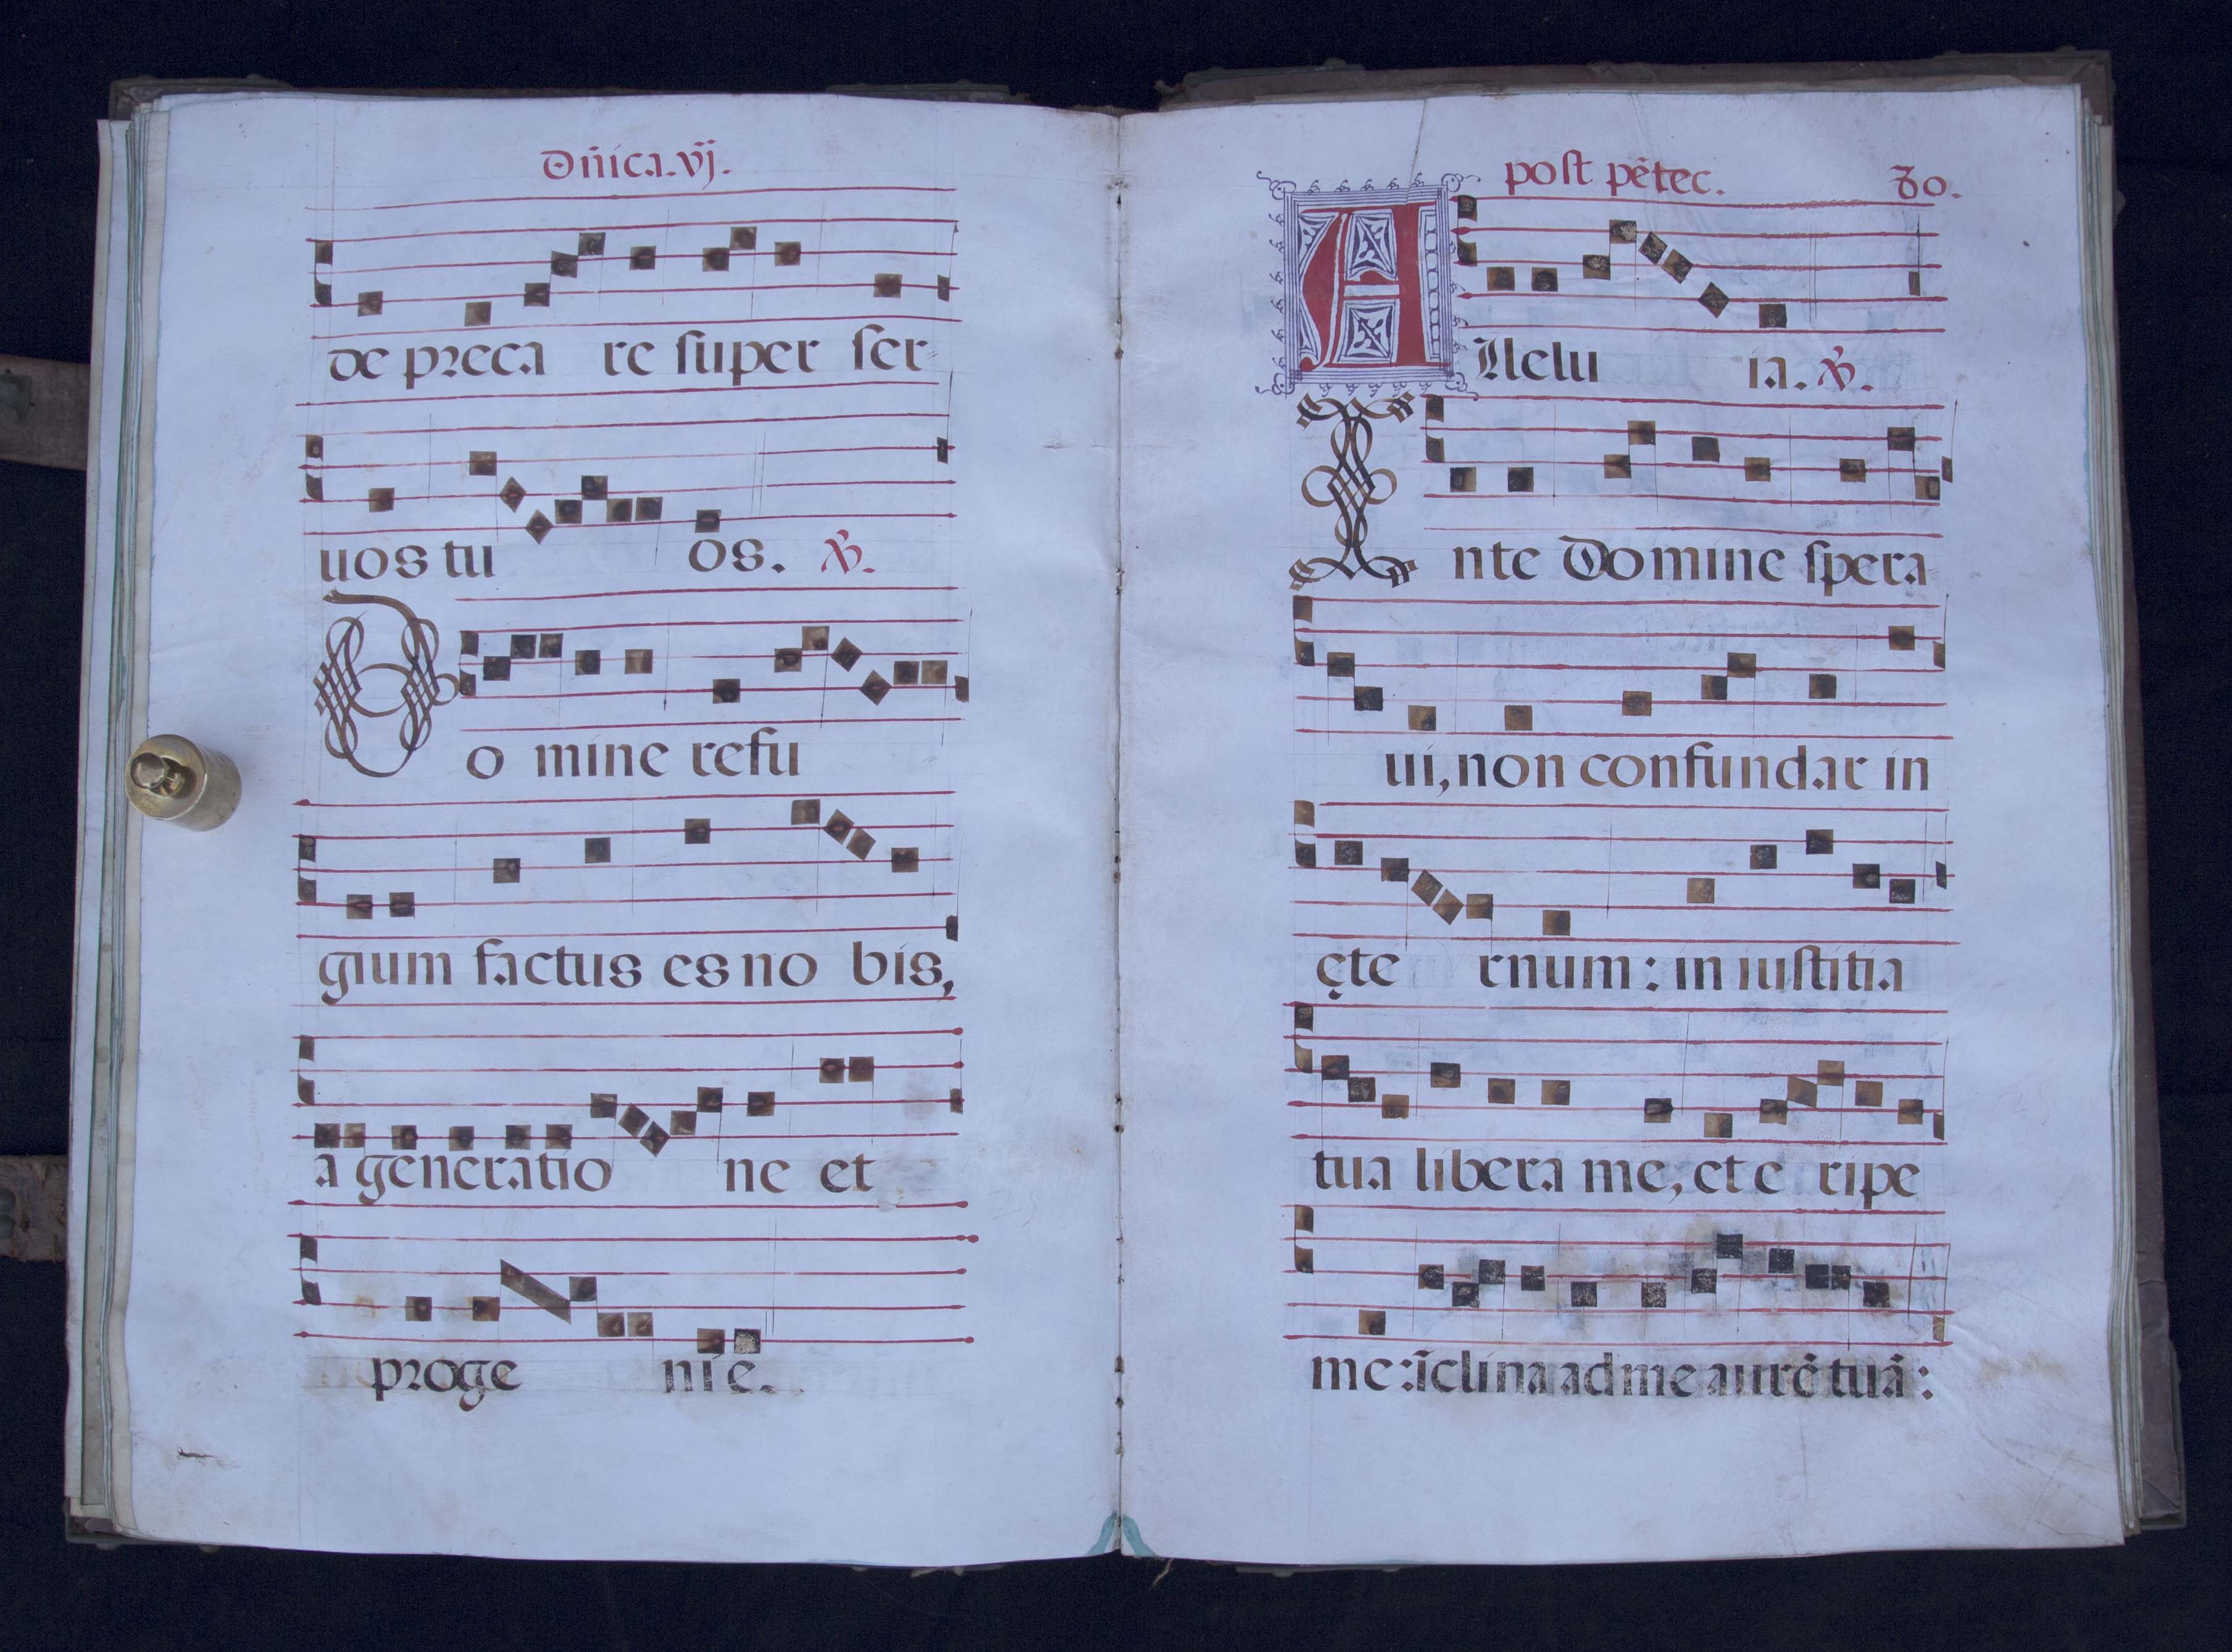 Dñica.vj.
de preca re super ser-
uos tu os. ℣.
Do mine refu
gium factus es no bis,
a generatio ne et
proge nie.
post pẽtec. 30.
Allelu ia. ℣.
Inte Domine spera-
ui, non confundar in
ęte rnum: in iustitia
tua libera me, et e ripe
me: ĩclina ad me aurẽ tuã: